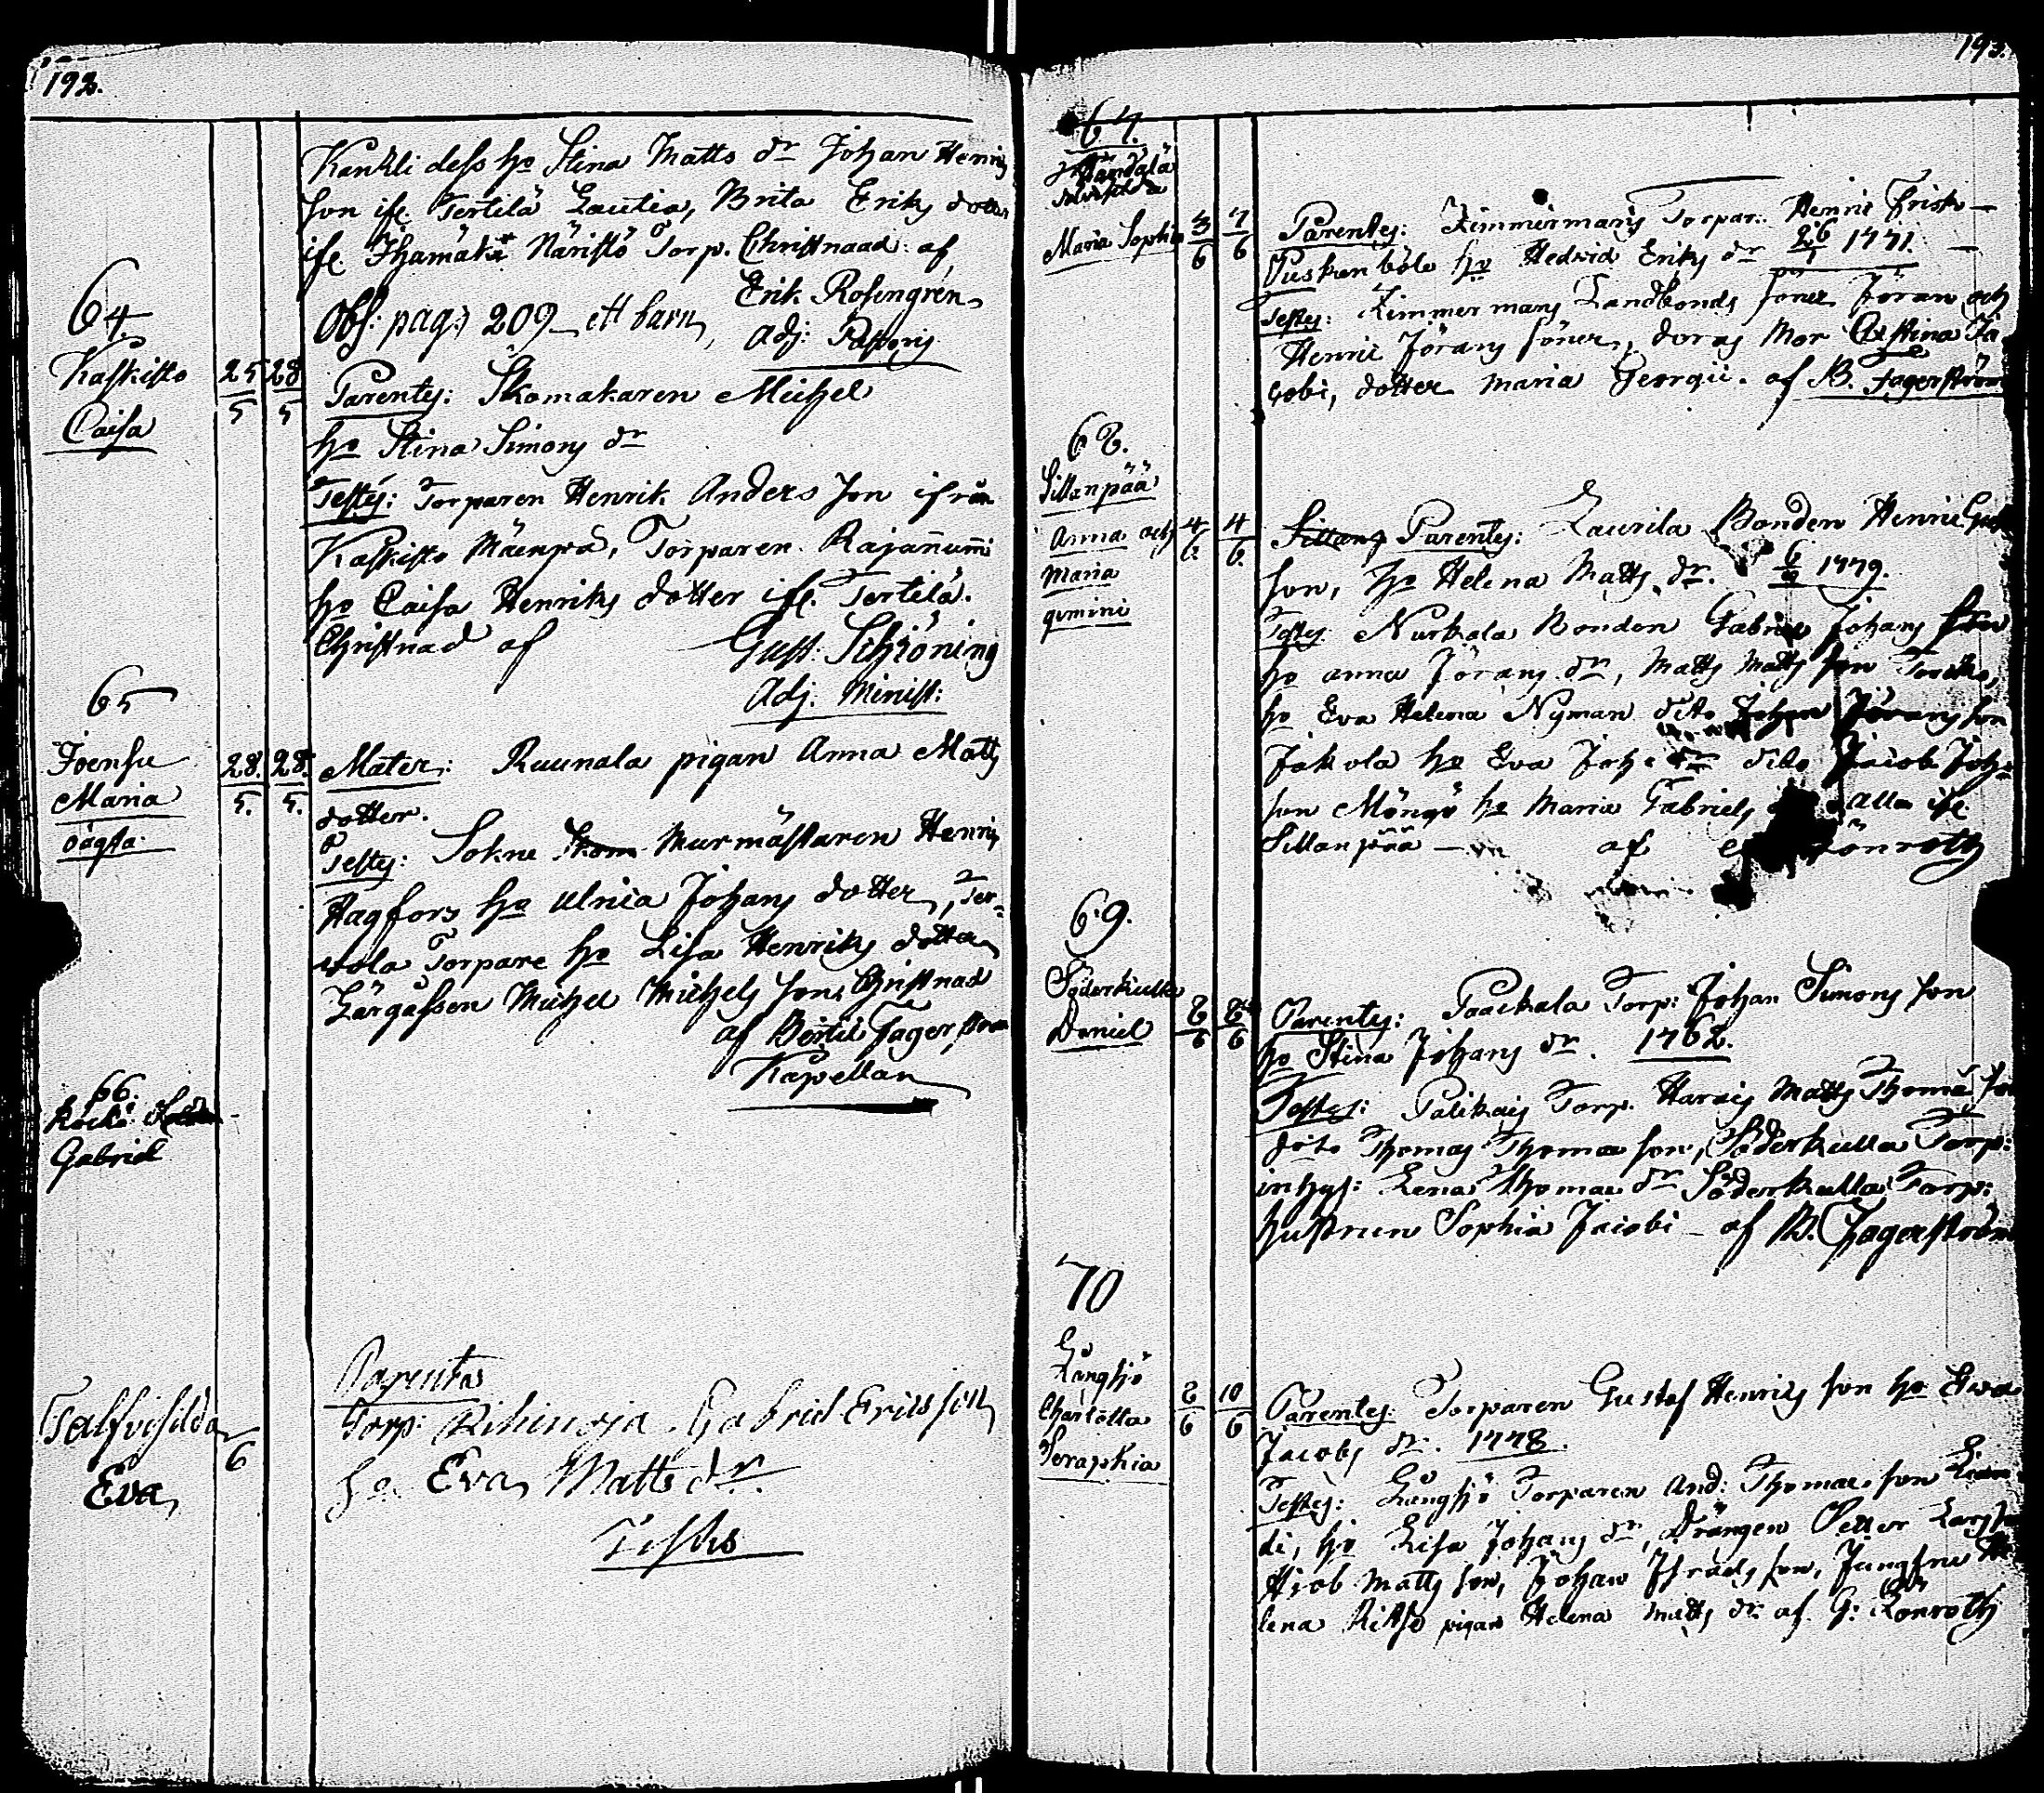 192.
Kankli dess ho Stina Matts dr Johan Henrics
son ifr. Tertilä Lautia, Brita Eriks dotter
ifr. Torp. Christnad af
Erik Rosengren
Adj: Pastoris
Obs: pag: 209 ett barn,
64
Kaskisto
Caisa
25/5 28/5
Parentes: Skomakaren Michel
ho Stina Simons dr
Testes: Torparen Henrik Anders son ifrån
Kaskisto Mäenpä, Torparen Rajanummi
ho Caisa Henriks dotter ifr. Tertilä.
Christnad af Gust: Schröning
Adj. Minist:
65
Joensu
Maria
oägta.
28./5. 28./5.
Mater: Ruunala pigan Anna Matts
dotter.
Testes: Sokne Murmästaren Henric
Hagfors ho Ulrica Johans dotter, Ter-
vola Torpare ho Lisa Henriks dotter
Michel Michels son, Christnad
af Bertil Fagerström
Kapellan
66.
Gabriel
Eva
6
Parentes
Torp: Gabriel Ericsson
ho Eva Matts dr.
Testes
193.
67.
Maria Sophia
3/6 7/6
Parentes: Zimmermans Torpar: Henric
Puskenböle ho Hedvid Eriks dr 26/1 1771.
Testes: Zimmermans Landbonds söner Jöran och
Henric Jörans söner, deras Mor Christina Ja-
cobi, dotter Maria Georgii. af B. Fagerström
68.
Sillanpää
Anna och
Maria
gemini
4/6. 4/6.
Parentes: Laurila Bonden Henric
son, ho Helena Matts dr. 6/9 1779.
Testes: Nurkala Bonden Gabriel Johans son
ho Anna Jörans dr, Matts Matts son
ho Eva Helena Nyman dito Johan Jörans son
Jakola ho Eva Joh: dr dito Jacob Joh:
son Möngö ho Maria Gabriels alla ifr.
Sillanpää af Lönroth
69.
Söderkulla
Daniel
8/6 8/6
Parentes: Paackala Torp: Johan Simons son
ho Stina Johans dr. 1762.
Testes: Palikais Torp. Matts Thomæ son
dito Thomas Thomæ son, Söderkulla Torp:
inhys: Lena Thomæ dr Söderkulla Torp:
hustrun Sophia Jacobi - af B. Fagerström
70
Långsjö
Charlotta
Seraphia
8/6 10/6
Parentes: Torparen Gustaf Henrics son ho Eva
Jacobs dr. 1778.
Testes: Långsjö Torparen And: Thomæ son
ho Lisa Johans dr, Drängen Petter Lars son
Matts son, Johan son, Jungfru He-
lena pigan Helena Matts dr. af G: Lönroth